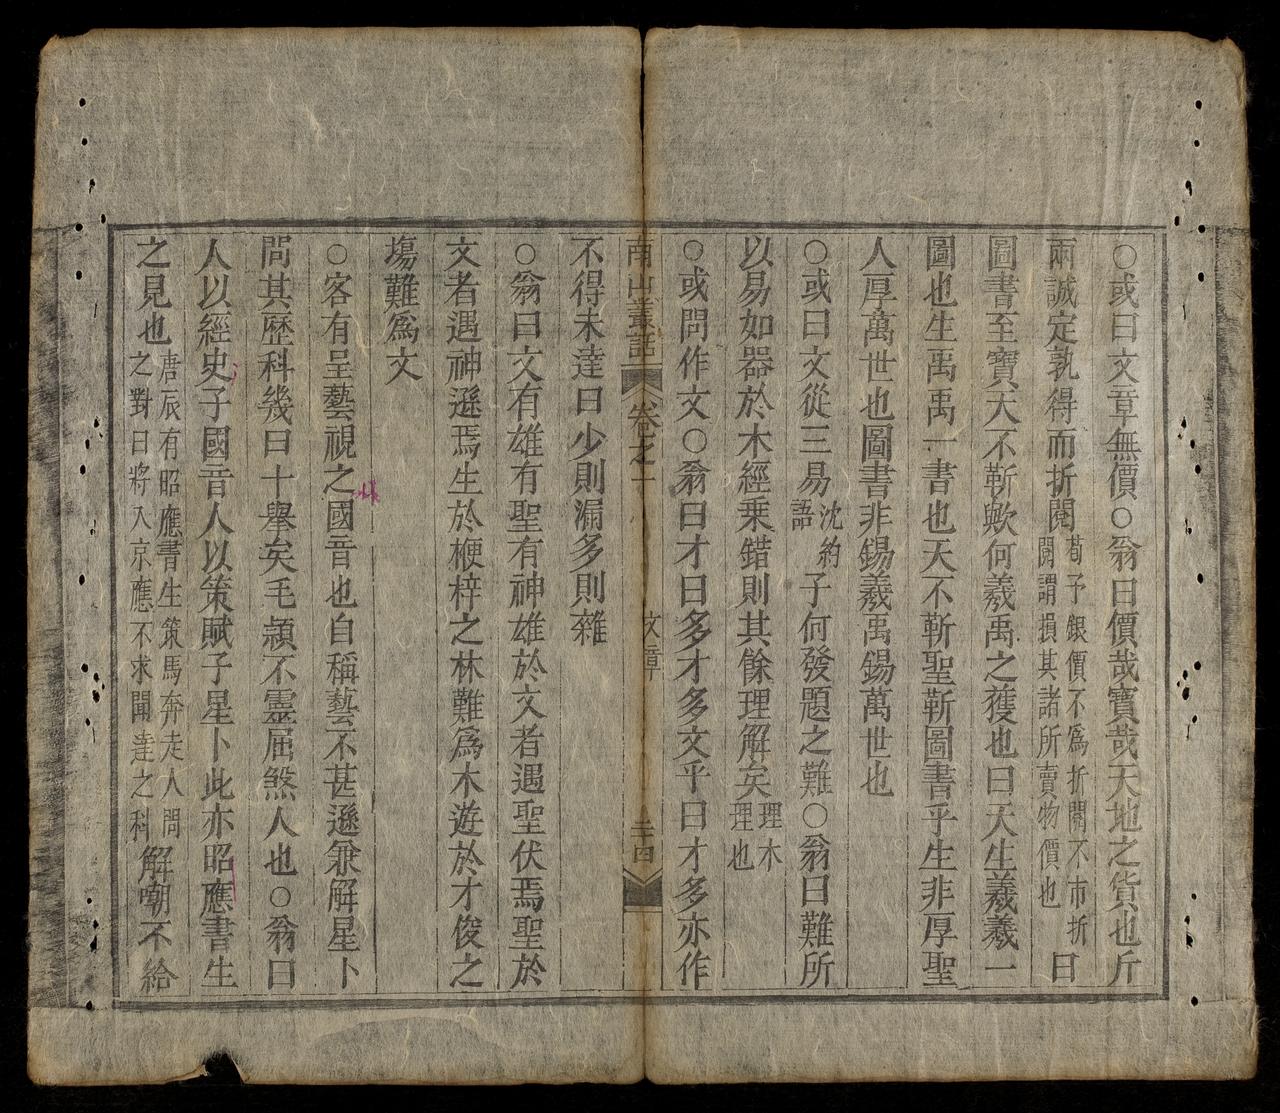 ○或曰文章無價○翁曰價哉寶哉天地之貨也斤
兩誠定孰得而折閱荀子銀價不爲折閱不市折閱謂損其諸所賣物價也曰
圖書至寶天不靳歟何羲禹之獲也曰天生羲羲一
圖也生禹禹一書也天不靳聖靳圖書乎生非厚聖
人厚萬世也圖書非錫羲禹錫萬世也
○或曰文從三易沈約語子何發題之難○翁曰難所
以易如器於木經乘錯則其餘理解矣理木理也
○或問作文○翁曰才曰多才多文乎曰才多亦作
南山叢話 卷之十 文章 二十四
不得未達曰少則漏多則雜
○翁曰文有雄有聖有神雄於文者遇聖伏焉聖於
文者遇神遜焉生於楩梓之林難爲木遊於才俊之
塲難爲文
○客有呈藝視之國音也自稱藝不甚遜兼解星卜
問其歷科幾曰十舉矣毛穎不靈屈煞人也○翁曰
人以經史子國音人以策賦子星卜此亦昭應書生
之見也唐辰有昭應書生策馬奔走人問之對曰將入京應不求聞達之科解嘲不給